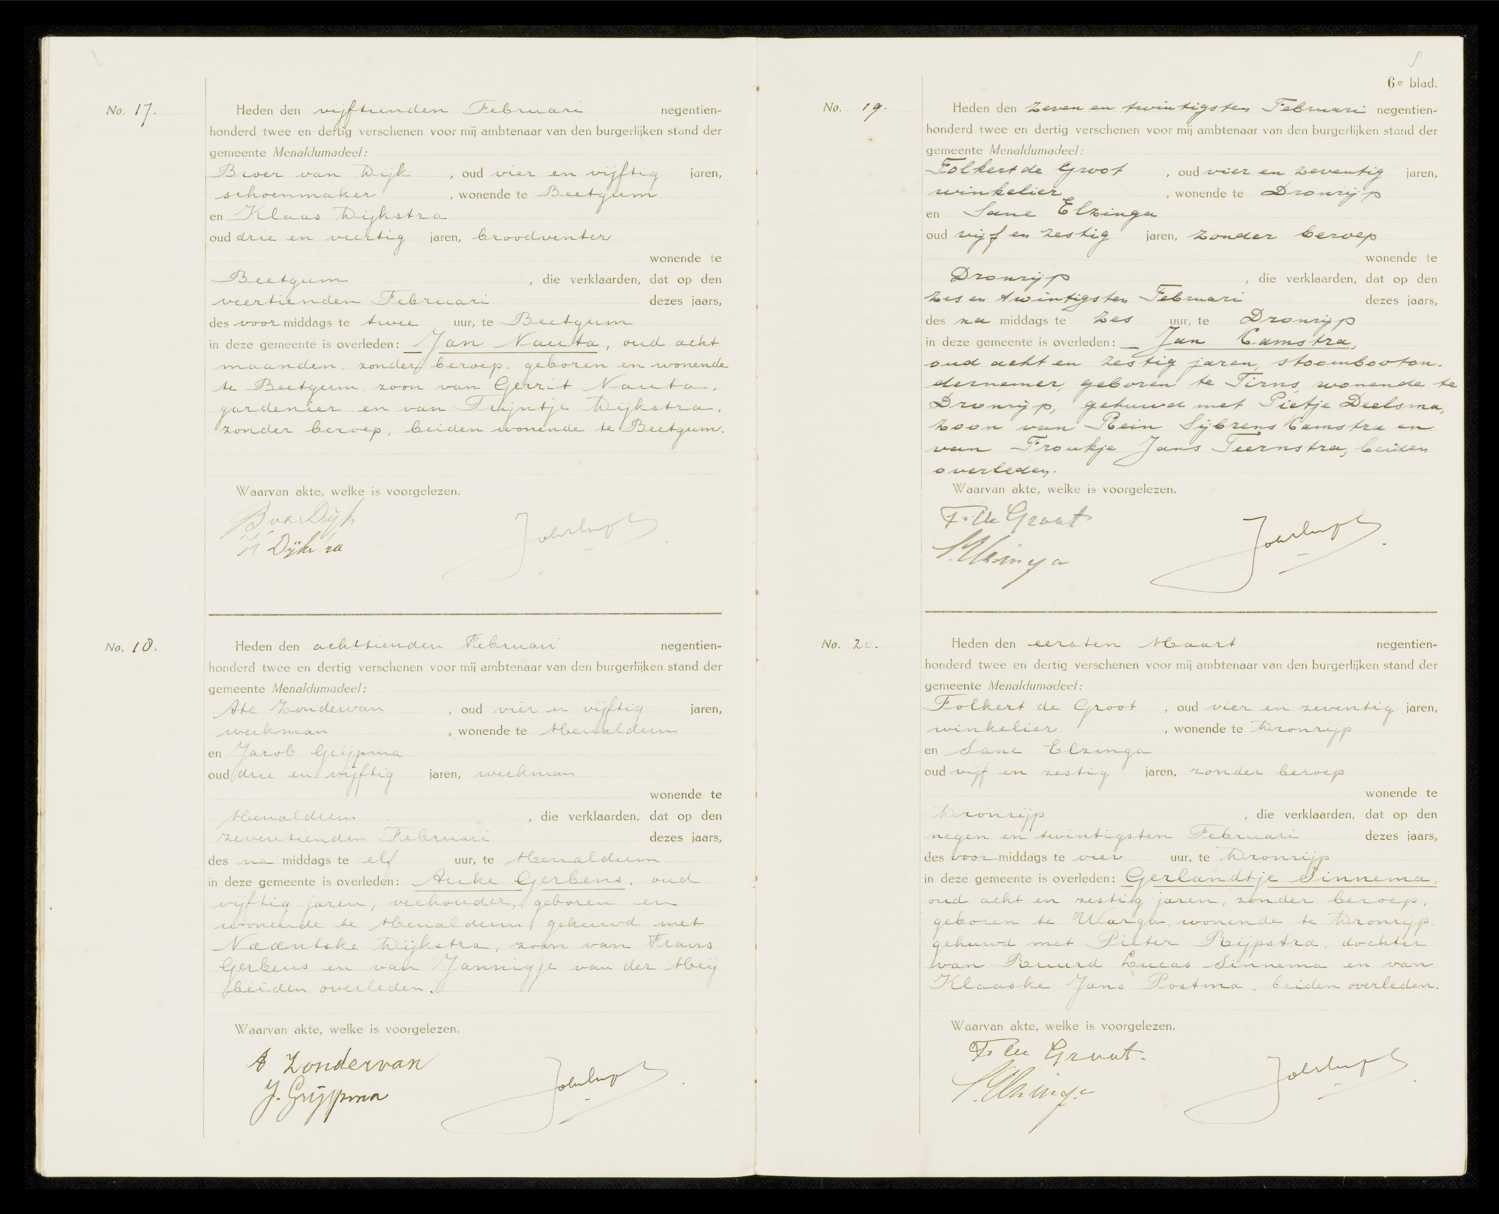 No. 17.
Heden den vijftienden Februari negentien-
honderd twee en dertig verschenen voor mij ambtenaar van den burgerlijken stand der
gemeente Menaldumadeel:
van Dijk, oud vier en vijftig jaren,
schoenmaker, wonende te Beetgum
en Klaas Dijkstra
oud drie en veertig jaren, broodventer
wonende te
Beetgum, die verklaarden, dat op den
veertienden Februari dezes jaars,
des voormiddags te twee uur, te Beetgum
in deze gemeente is overleden: Jan Nauta, oud acht
maanden, zonder beroep, geboren en wonende
te Beetgum, zoon van Gerrit Nauta,
gardenier en van Trijntje Dijkstra,
zonder beroep, beiden wonende te Beetgum.
Waarvan akte, welke is voorgelezen.
B van Dijk
K Dijkstra
No. 18.
Heden den achttienden Februari negentien-
honderd twee en dertig verschenen voor mij ambtenaar van den burgerlijken stand der
gemeente Menaldumadeel:
Ate Zondervan, oud vier en vijftig jaren,
werkman, wonende te Menaldum
en Jacob Grijpma
oud drie en vijftig jaren, werkman
wonende te
Menaldum, die verklaarden, dat op den
zeventienden Februari dezes jaars,
des na middags te elf uur, te Menaldum
in deze gemeente is overleden: Auke Gerbens, oud
vijftig jaren, veehouder, geboren en
wonende te Menaldum, gehuwd met
Dijkstra, zoon van Frans
Gerbens en van Jannigje van der Meij
beiden overleden.
Waarvan akte, welke is voorgelezen.
A Zondervan
J. Grijpma
6e blad.
No. 19.
Heden den zeven en twintigsten Februari negentien-
honderd twee en dertig verschenen voor mij ambtenaar van den burgerlijken stand der
gemeente Menaldumadeel:
Folkert de Groot, oud vier en zeventig jaren,
winkelier, wonende te Dronrijp
en Sane Elzinga
oud vijf en zestig jaren, zonder beroep
wonende te
Dronrijp, die verklaarden, dat op den
zes en twintigsten Februari dezes jaars,
des na middags te zes uur, te Dronrijp
in deze gemeente is overleden: Jan Camstra,
oud acht en zestig jaren, stoombooton-
dernemer, geboren te Tirns, wonende te
Dronrijp, gehuwd met Pietje Deelsma,
zoon van Rein Sijbrens Camstra en
van Froukje Jans Teernstra, beiden
overleden.
Waarvan akte, welke is voorgelezen.
F. de Groot
S. Elzinga
No. 20.
Heden den eersten Maart negentien-
honderd twee en dertig verschenen voor mij ambtenaar van den burgerlijken stand der
gemeente Menaldumadeel:
Folkert de Groot, oud vier en zeventig jaren,
winkelier, wonende te Dronrijp
en Sane Elzinga
oud vijf en zestig jaren, zonder beroep
wonende te
Dronrijp, die verklaarden, dat op den
negen en twintigsten Februari dezes jaars,
des voormiddags te vier uur, te Dronrijp
in deze gemeente is overleden: Gerlandtje Sinnema,
oud acht en zestig jaren, zonder beroep,
geboren te Warga, wonende te Dronrijp,
gehuwd met Pieter Rijpstra, dochter
van Ruurd Lucas Sinnema en van
Klaaske Jans Postma, beiden overleden.
Waarvan akte, welke is voorgelezen.
F. de Groot.
S. Elzinga